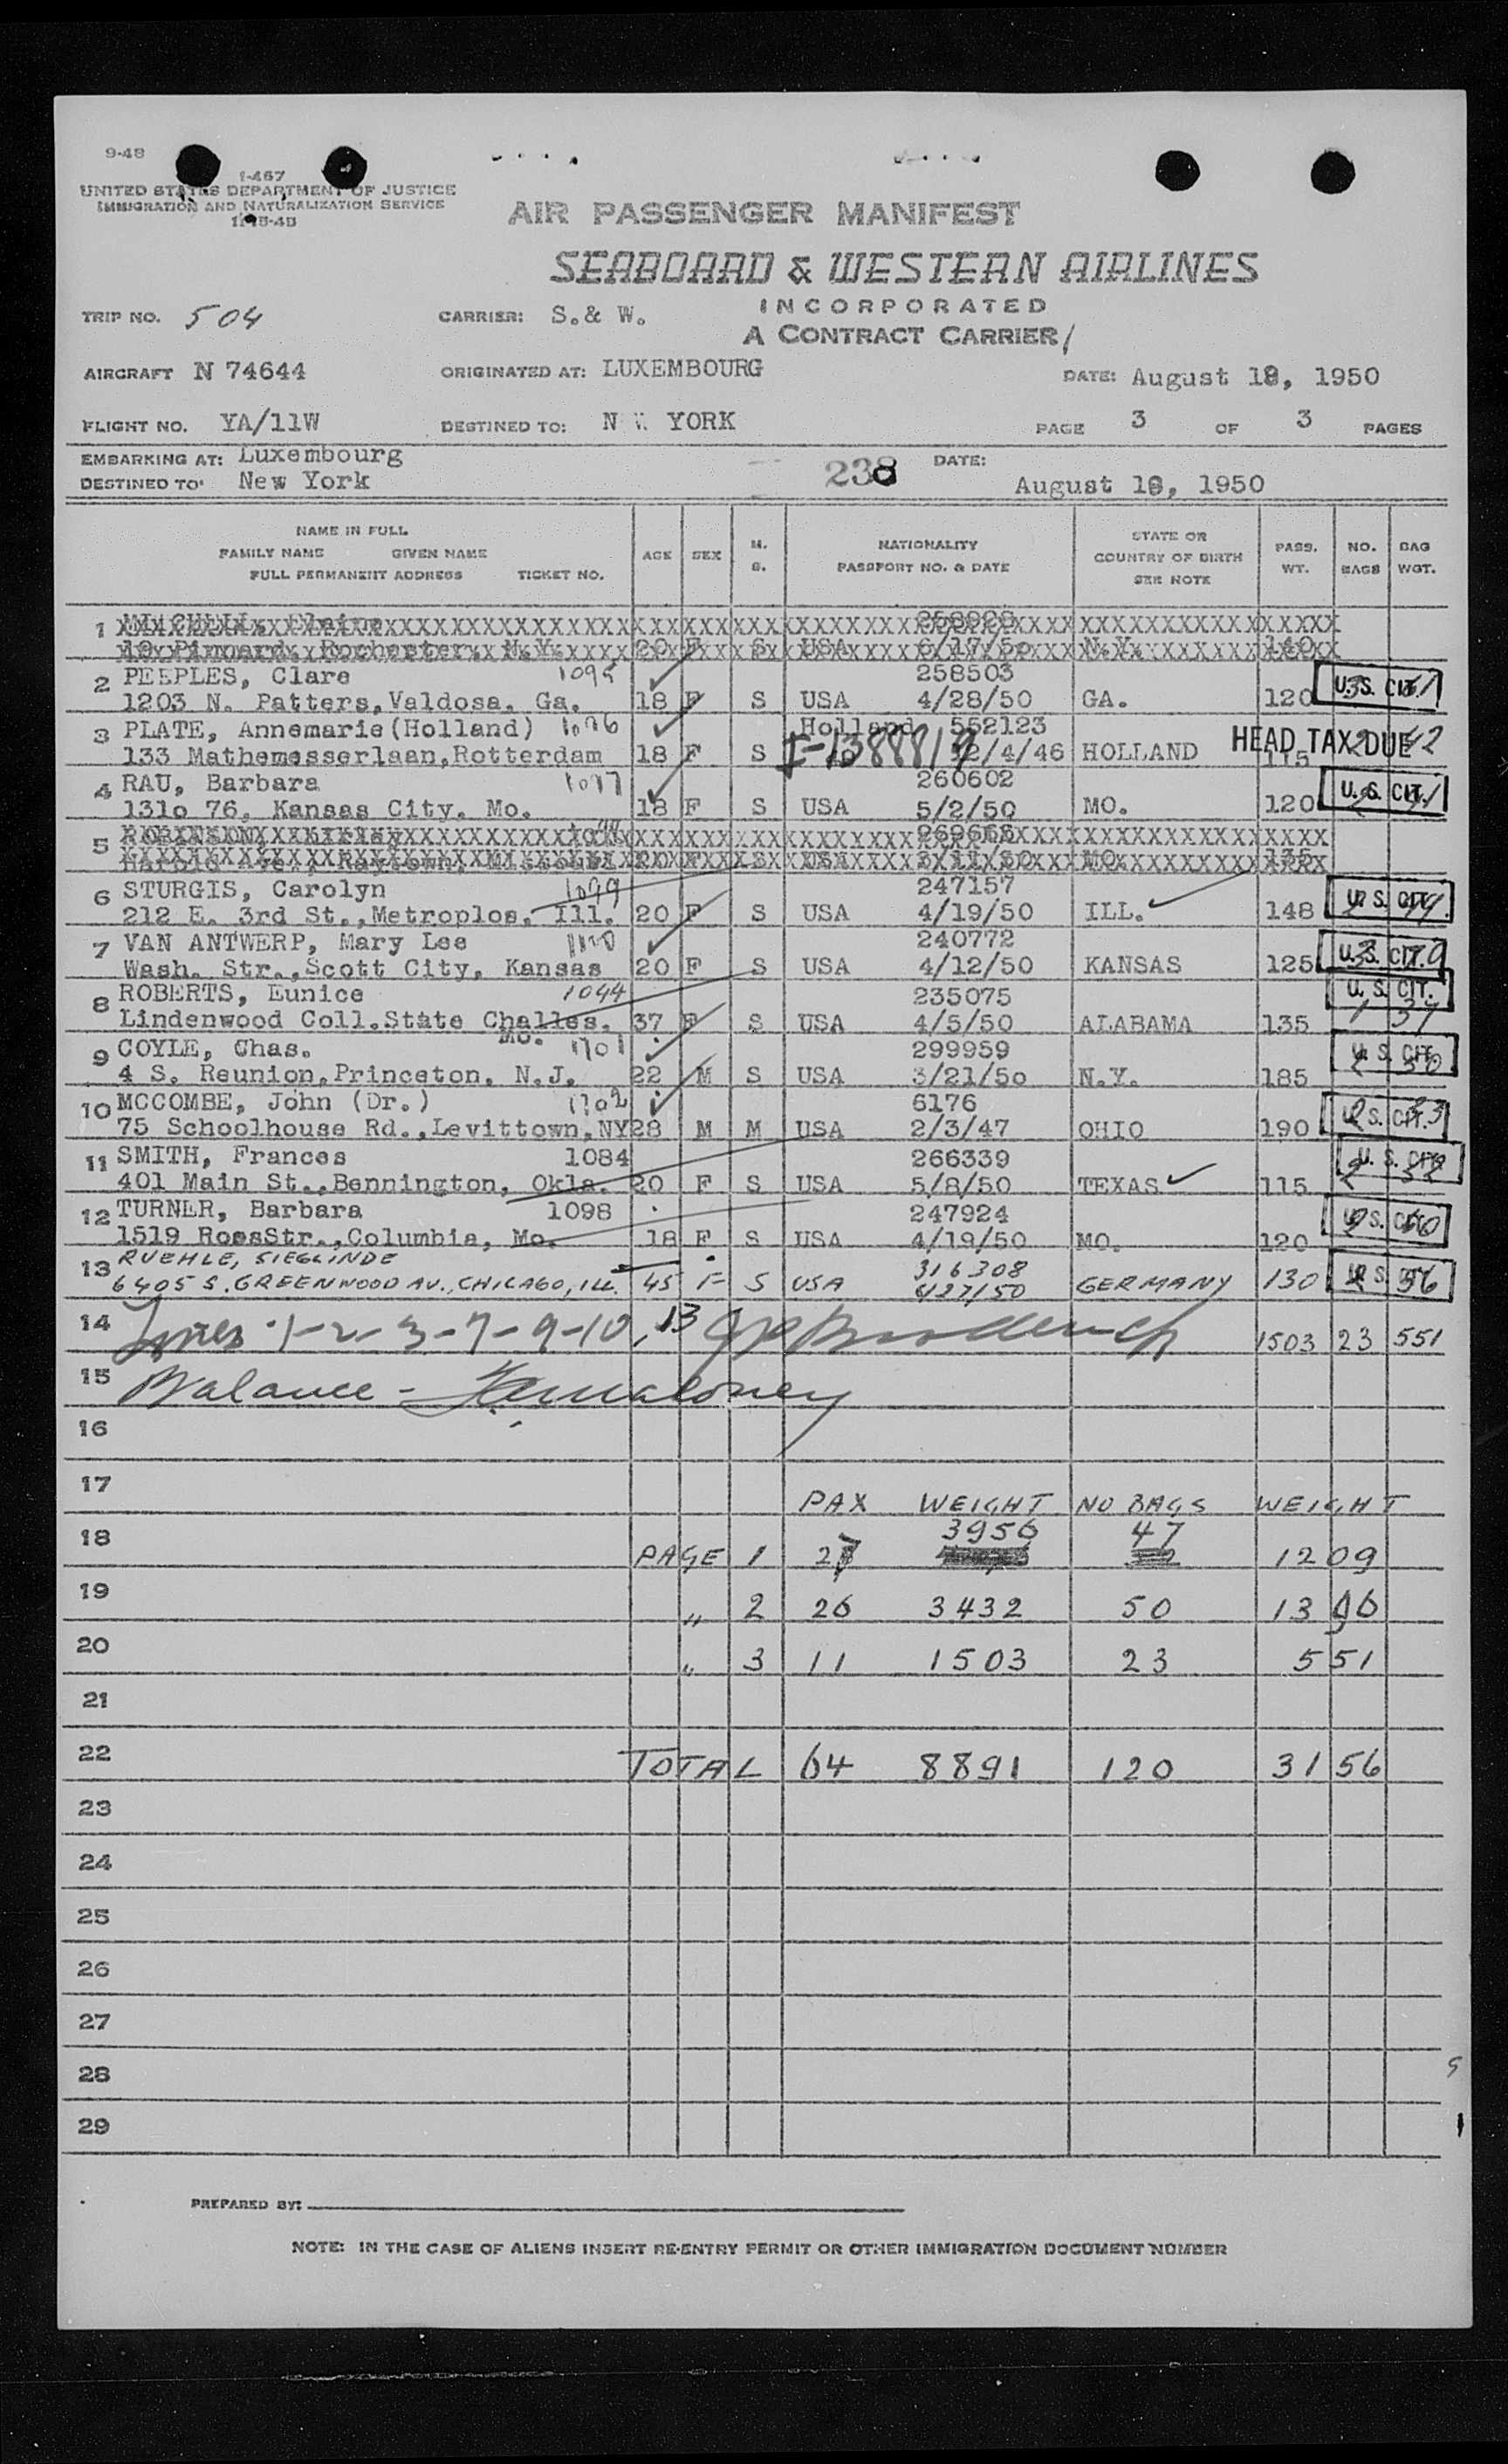 9-48
I-467
UNITED STATES DEPARTMENT OF JUSTICE
IMMIGRATION AND NATURALIZATION SERVICE
AIR PASSENGER MANIFEST
SEABOARD & WESTERN AIRLINES
INCORPORATED
A CONTRACT CARRIER
TRIP NO. 504 CARRIER: S.& W.
AIRCRAFT N 74644 ORIGINATED AT: LUXEMBOURG DATE: August 18, 1950
FLIGHT NO. YA/11W DESTINED TO: N W YORK PAGE 3 OF 3 PAGES
EMBARKING AT: Luxembourg DATE:
DESTINED TO: New York 238 August 18, 1950
NAME IN FULL
FAMILY NAME GIVEN NAME
FULL PERMANENT ADDRESS TICKET NO.
AGE SEX M. S.
NATIONALITY
PASSPORT NO. & DATE
STATE OR
COUNTRY OF BIRTH
SEE NOTE
PASS. WT.
NO. BAGS
BAG WGT.
1 MITCHELL, Elaine 258928
Rochester, N.Y. 20 F S USA N.Y. 140
2 PEEPLES, Clare 1095 258503
1203 N. Patters, Valdosa, Ga. 18 F S USA 4/28/50 GA. 120 U.S. CIT.
3 PLATE, Annemarie(Holland) 1096 Holland 552123
133 Mathemesserlaan,Rotterdam 18 F S I-1388819 12/4/46 HOLLAND 115 HEAD TAX DUE 2 42
4 RAU, Barbara 1097 260602
131o 76, Kansas City, Mo. 18 F S USA 5/2/50 MO. 120 U.S. CIT.
5 ROBINSON, Shirley 269668
Raytown, Missouri 20 F S USA MO. 135
6 STURGIS, Carolyn 1099 247157
212 E. 3rd St.,Metroplos, Ill. 20 F S USA 4/19/50 ILL. 148 U.S. CIT.
7 VAN ANTWERP, Mary Lee 1100 240772
Wash. Str.,Scott City, Kansas 20 F S USA 4/12/50 KANSAS 125 U.S. CIT.
8 ROBERTS, Eunice 1044 235075 U.S. CIT.
Lindenwood Coll.State Challes, 37 F S USA 4/5/50 ALABAMA 135 1 37
Mo.
9 COYLE, Chas. 1101 299959
4 S. Reunion,Princeton, N.J. 22 M S USA 3/21/5o N.Y. 185 U.S. CIT.
10 MCCOMBE, John (Dr.) 1102 6176
75 Schoolhouse Rd.,Levittown,NY 28 M M USA 2/3/47 OHIO 190 U.S. CIT.
11 SMITH, Frances 1084 266339
401 Main St.,Bennington, Okla. 20 F S USA 5/8/50 TEXAS 115 U.S. CIT.
12 TURNER, Barbara 1098 247924
1519 RossStr.,Columbia, Mo. 18 F S USA 4/19/50 MO. 120 U.S. CIT.
13 RUEHLE, SIEGLINDE 316308
6405 S. GREENWOOD AV., CHICAGO, ILL. 45 F S USA 4/27/50 GERMANY 130 U.S. CIT. 56
14 Lines 1-2-3-7-9-10, 13 1503 23 551
15 Balance - Maloney
16
17 PAX WEIGHT NO BAGS WEIGHT
18 PAGE 1 27 3956 47 1209
19 " 2 26 3432 50 1396
20 " 3 11 1503 23 551
21
22 TOTAL 64 8891 120 3156
23
24
25
26
27
28
29
PREPARED BY:
NOTE: IN THE CASE OF ALIENS INSERT RE-ENTRY PERMIT OR OTHER IMMIGRATION DOCUMENT NUMBER